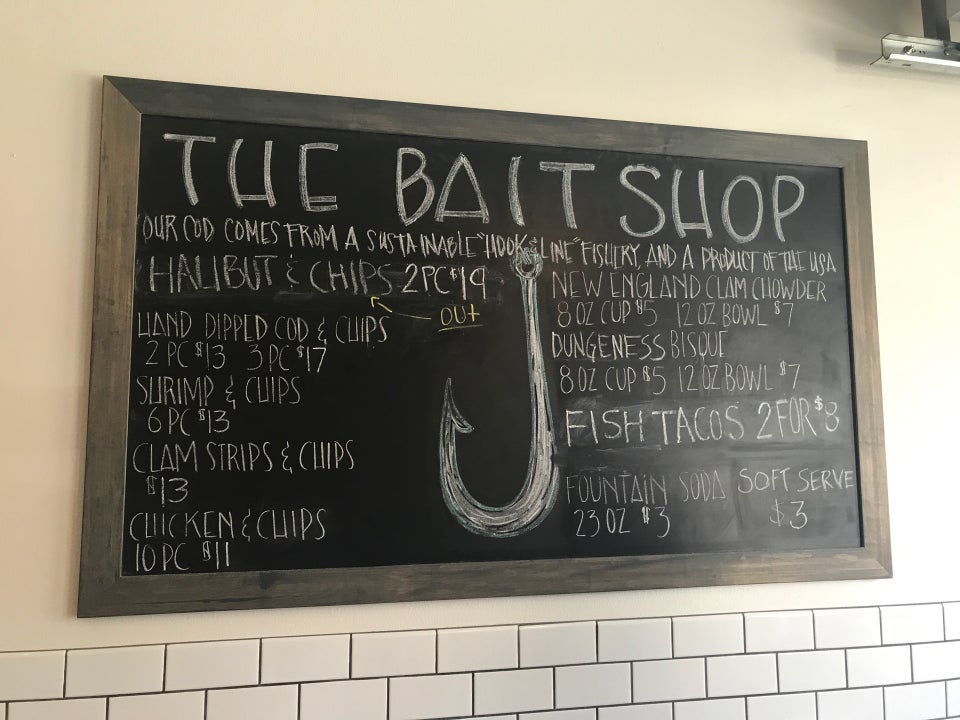 THE BAIT SHOP
OUR COD COMES FROM A SUSTAINABLE "HOOK & LINE" FISHERY, AND A PRODUCT OF THE USA
HALIBUT & CHIPS 2PC $19
OUT
HAND DIPPED COD & CHIPS
2 PC $13 3 PC $17
SHRIMP & CHIPS
6 PC $13
CLAM STRIPS & CHIPS
$13
CHICKEN & CHIPS
10 PC $11
NEW ENGLAND CLAM CHOWDER
8 OZ CUP $5 12 OZ BOWL $7
DUNGENESS BISQUE
8 OZ CUP $5 12 OZ BOWL $7
FISH TACOS 2 FOR $8
FOUNTAIN SODA
23 OZ $3
SOFT SERVE
$3